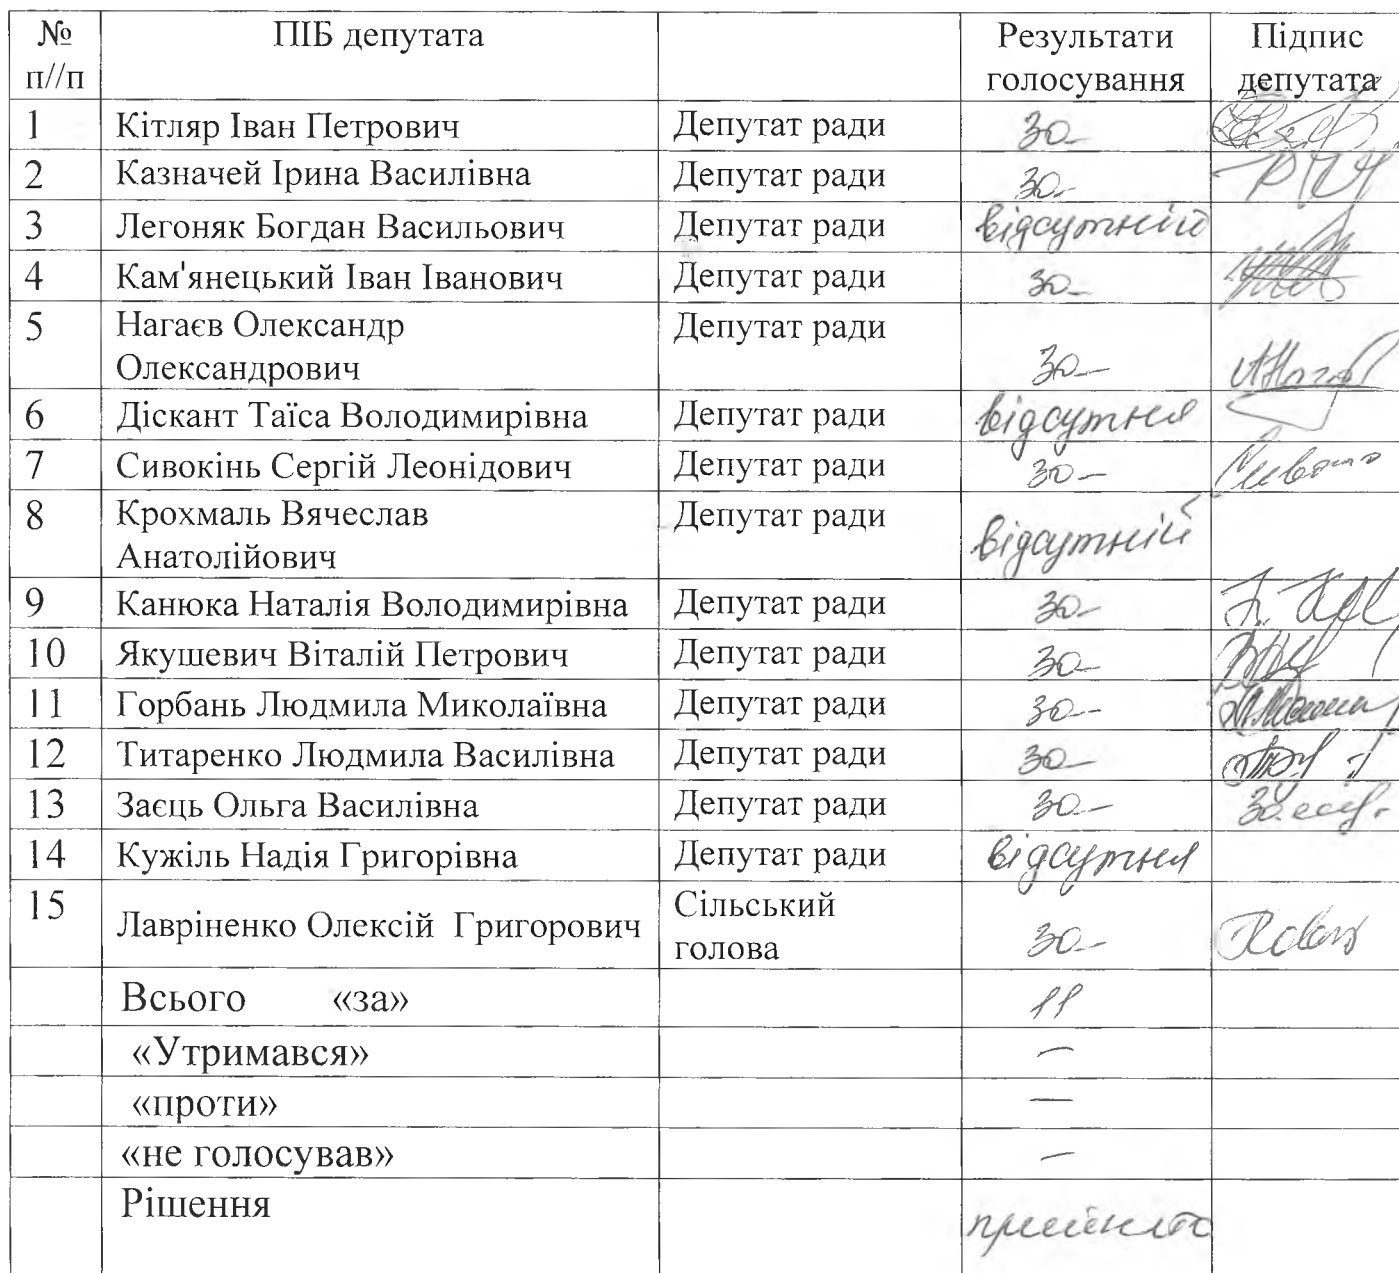 № п//п ПІБ депутата Результати голосування Підпис депутата
1 Кітляр Іван Петрович Депутат ради за
2 Казначей Ірина Василівна Депутат ради за
3 Легоняк Богдан Васильович Депутат ради відсутній
4 Кам'янецький Іван Іванович Депутат ради за
5 Нагаєв Олександр Олександрович Депутат ради за
6 Діскант Таїса Володимирівна Депутат ради відсутня
7 Сивокінь Сергій Леонідович Депутат ради за
8 Крохмаль Вячеслав Анатолійович Депутат ради відсутній
9 Канюка Наталія Володимирівна Депутат ради за
10 Якушевич Віталій Петрович Депутат ради за
11 Горбань Людмила Миколаївна Депутат ради за
12 Титаренко Людмила Василівна Депутат ради за
13 Заєць Ольга Василівна Депутат ради за
14 Кужіль Надія Григорівна Депутат ради відсутня
15 Лавріненко Олексій Григорович Сільський голова за
Всього «за» 11
«Утримався» —
«проти» —
«не голосував» —
Рішення прийнято